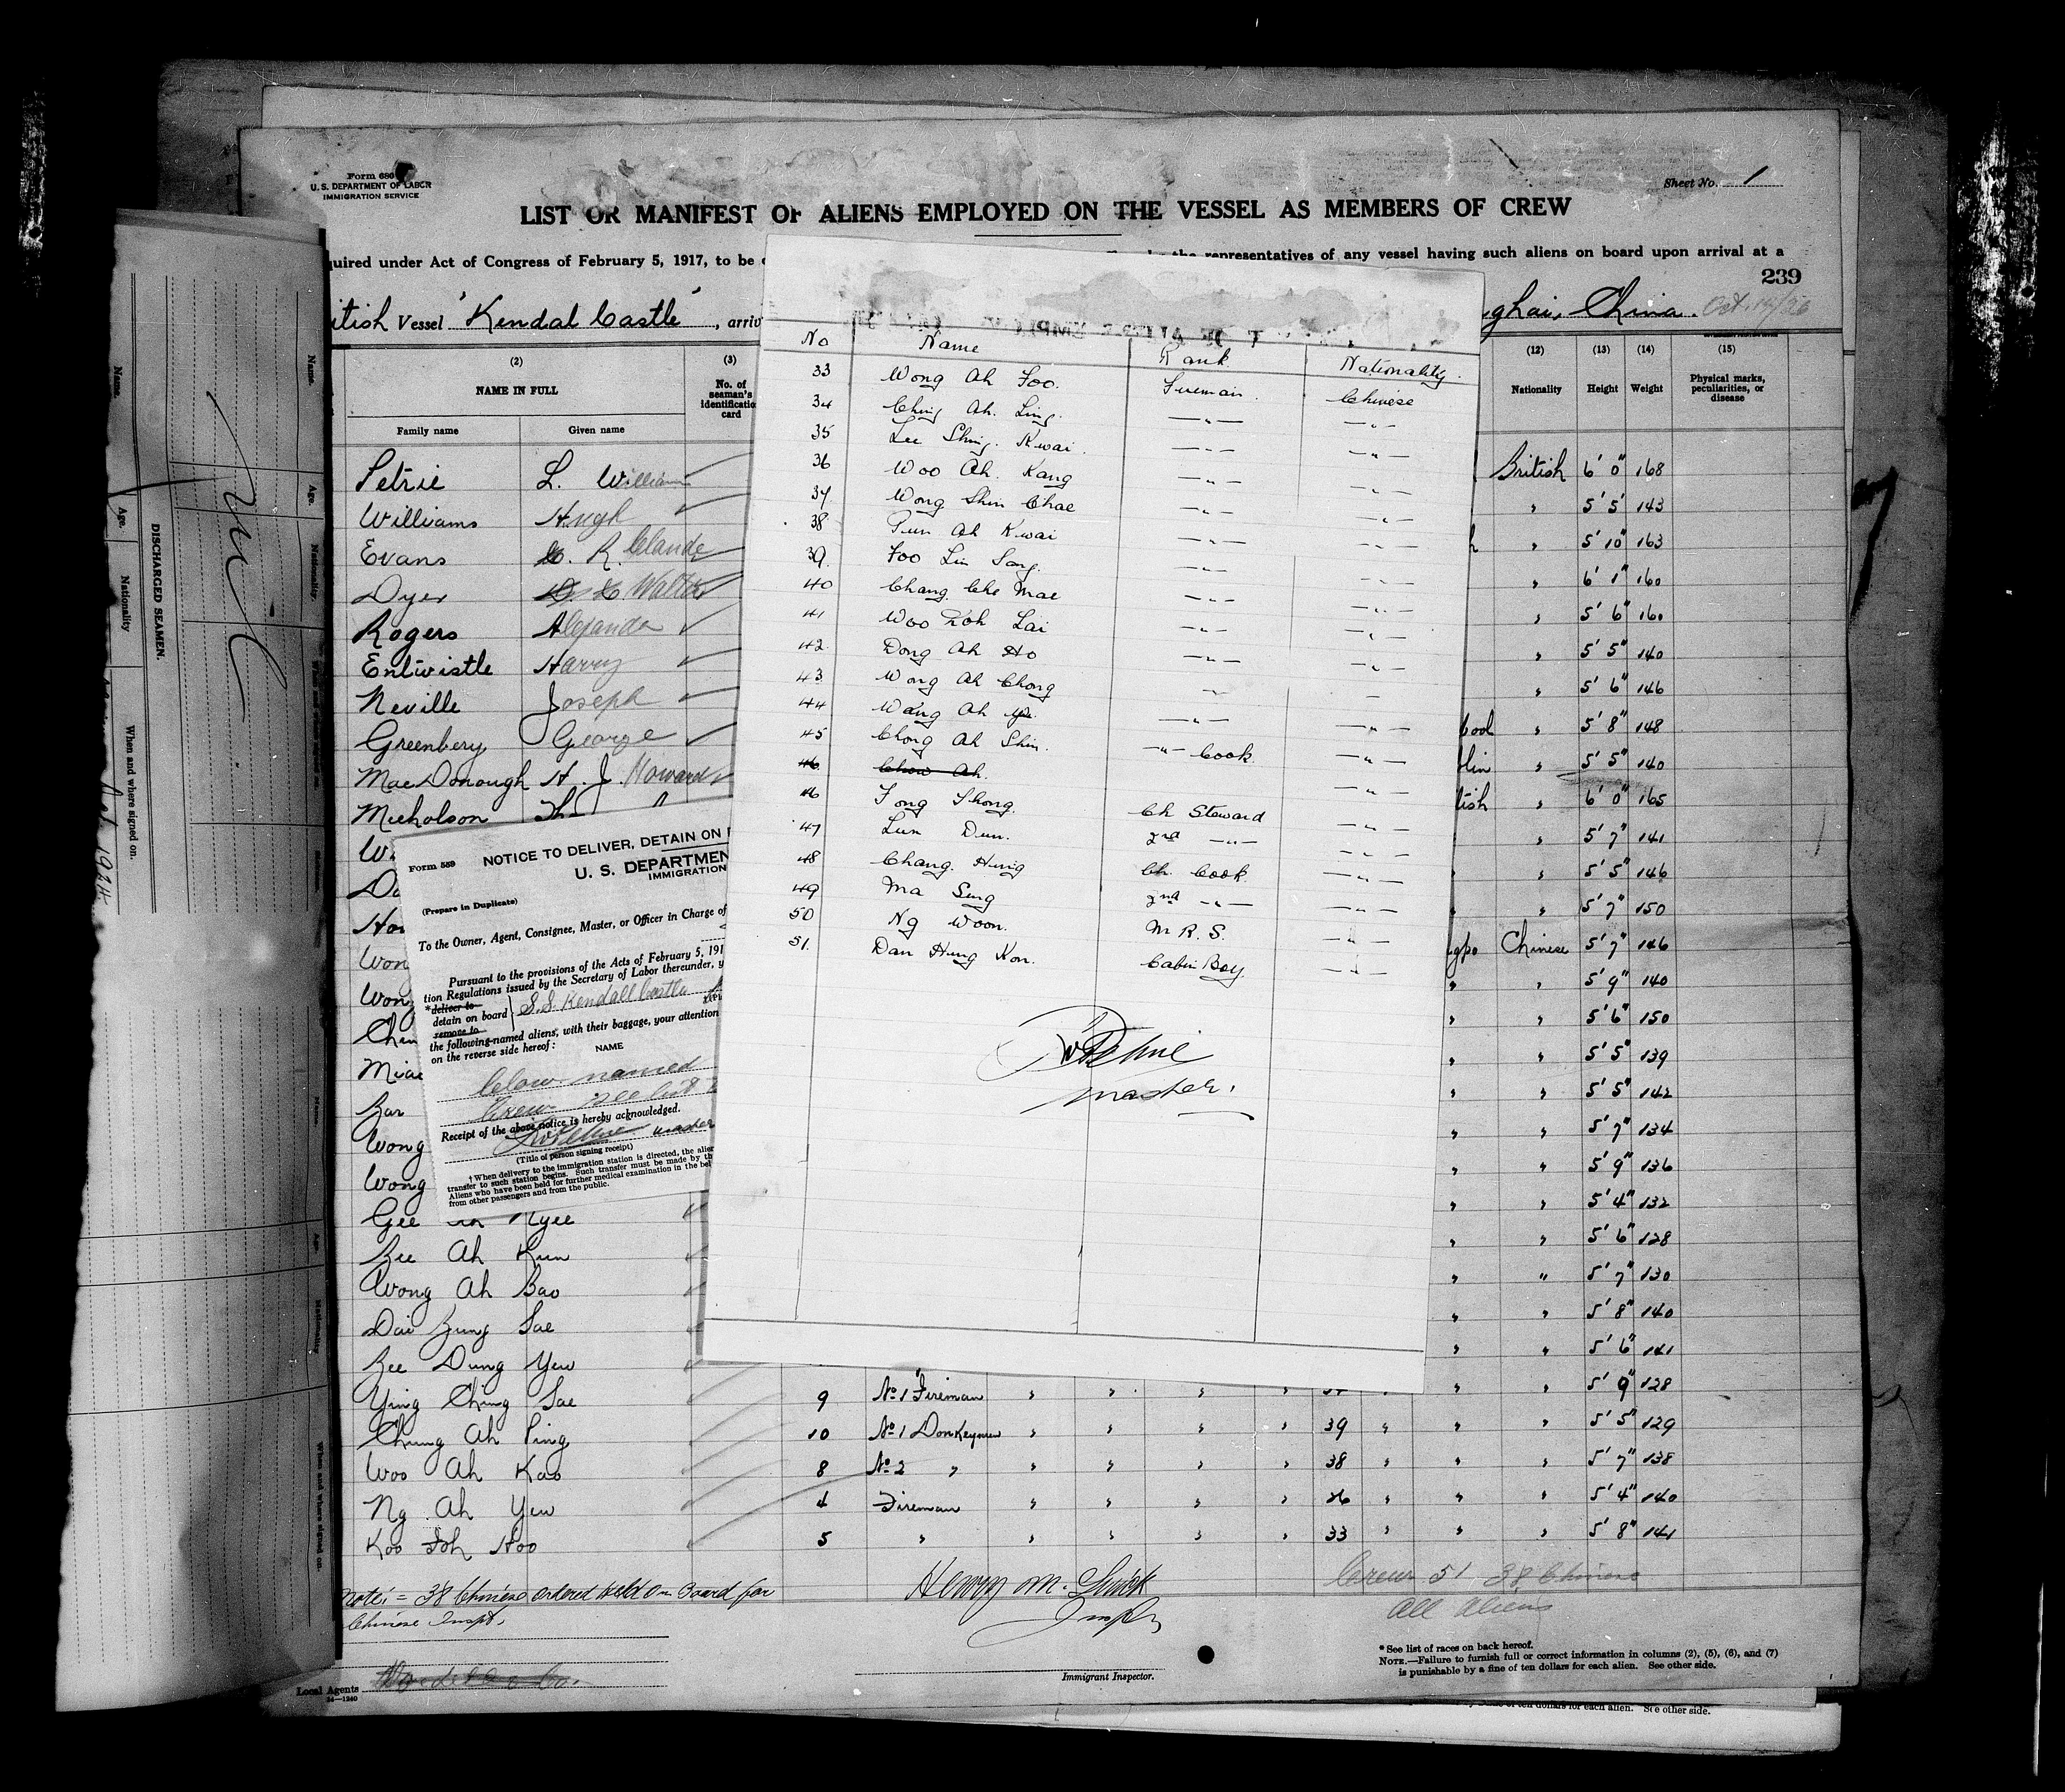 Form 680
U. S. DEPARTMENT OF LABOR
IMMIGRATION SERVICE
Sheet No. 1
LIST OR MANIFEST OF ALIENS EMPLOYED ON THE VESSEL AS MEMBERS OF CREW
quired under Act of Congress of February 5, 1917, to be
the representatives of any vessel having such aliens on board upon arrival at a
239
itish Vessel "Kendal Castle", arriv
ghai, China. Oct. 14/26
(2) (3)
NAME IN FULL
No. of seaman's identificatio card
Family name Given name
(12) (13) (14) (15)
Nationality Height Weight Physical marks, peculiarities, or disease
Petrie L. William
Williams Hugh
Evans R. Claude
Dyer Walter
Rogers Alexander
Entwistle Harry
Neville Joseph
Greenbery George
MacDonough H. J. Howard
Micholson Th
W
Do
Ho
Won
Won
Chen
Zar
Wong
Wong
Gee Ah Nyee
Zee Ah Kun
Wong Ah Bao
Dai Zung Sae
Zee Dung Yew
Ying Ching Sae
Chung Ah Ping
Woo Ah Kao
Ng Ah Yew
Koo Foh Hoo
British 6' 0" 168
" 5' 5" 143
" 5' 10" 163
" 6' 1" 160
" 5' 6" 160
" 5' 5" 140
" 5' 6" 146
ool " 5' 8" 148
lin " 5' 5" 140
tish " 6' 0" 165
" 5' 7" 141
" 5' 5" 146
" 5' 7" 150
gpo Chinese 5' 7" 146
" " 5' 9" 140
" " 5' 6" 150
" " 5' 5" 139
" " 5' 5" 142
" " 5' 7" 134
" " 5' 9" 136
" " 5' 4" 132
" " 5' 6" 128
" " 5' 7" 130
" " 5' 8" 140
" " 5' 6" 141
9 No 1 Fireman " " " " " " " 5' 9" 128
10 No 1 Donkeyman " " " " 39 " " " 5' 5" 129
8 No 2 " " " " " 38 " " " 5' 7" 138
4 Fireman " " " " 26 " " " 5' 4" 140
5 " " " " " 33 " " " 5' 8" 141
Note: = 38 Chinese ordered held on Board for
Chinese Inspt.
Crew 51 38 Chinese
All Aliens
Local Agents
14—1240
Immigrant Inspector.
* See list of races on back hereof.
NOTE.—Failure to furnish full or correct information in columns (2), (5), (6), and (7)
is punishable by a fine of ten dollars for each alien. See other side.
of ten dollars for each alien. See other side.
No Name Rank Nationality
33 Wong Ah Foo. Fireman. Chinese
34 Ching Ah. Ling. —"— —"—
35 Lee Shing. Kwai. —"— —"—
36 Woo Ah. Kang —"— —"—
37 Wong Shin Chae —"— —"—
38 Pun Ah Kwai —"— —"—
39. Foo Lin Sang. —"— —"—
40 Chang. Che Mae —"— —"—
41 Woo Foh Lai —"— —"—
42. Dong Ah Ho —"— —"—
43 Wong Ah Chong " —
44 Wang Ah —"— —"—
45 Chong Ah Shin. —"— Cook —"—
46. Chow Ah.
46 Fong Shong. Ch Steward —"—
47 Lun Dun. 2nd —"— —"—
48 Chang. Hung Ch. Cook —"—
49 Ma Sung 2nd —"— —"—
50 Ng Woon. M R. S. —"—
51. Dan Hung Kon. Cabin Boy. —"—
master.
Form 559
NOTICE TO DELIVER, DETAIN ON
U. S. DEPARTMEN
IMMIGRATION
(Prepare in Duplicate)
To the Owner, Agent, Consignee, Master, or Officer in Charge of
Pursuant to the provisions of the Acts of February 5, 191
tion Regulations issued by the Secretary of Labor thereunder, y
*deliver to
detain on board S.S. Kendall Castle
remove to
the following-named aliens, with their baggage, your attention
on the reverse side hereof:
NAME
below named
Crew see list
Receipt of the above notice is hereby acknowledged.
master
(Title of person signing receipt)
† When delivery to the immigration station is directed, the alien
transfer to such station begins. Such transfer must be made by th
Aliens who have been held for further medical examination in the bel
from other passengers and from the public.
DISCHARGED SEAMEN.
Name. Age. Nationality When and where signed on.
Name. Age. Nationality
Name. Age. Nationality When and where signed on.